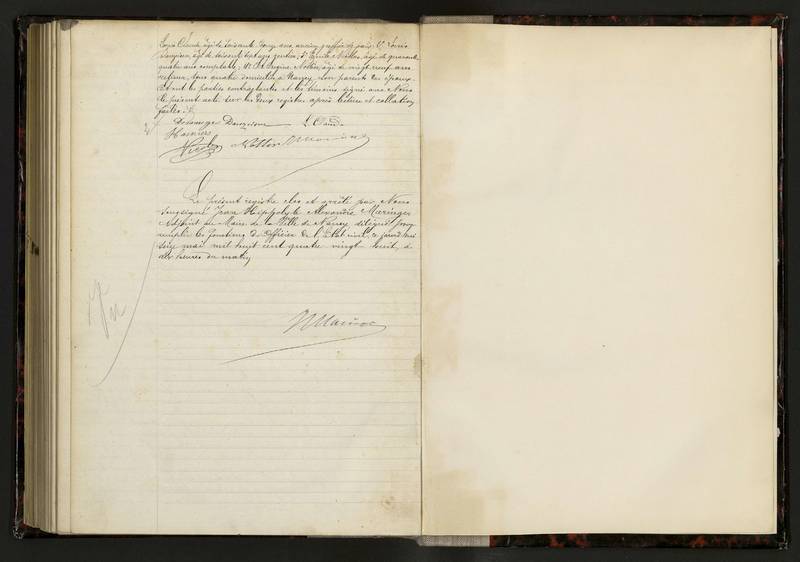 Louis Claude âgé de soixante onze ans, ancien greffier de paix, 2° Louis
âgé de soixante sept ans, rentier, 3° Emile Nolller, âgé de quarante
quatre ans comptable, 4° et Eugène Nolller, âgé de vingt neuf ans
tous quatre domiciliés à Nancy, non parents des époux.
Et ont les parties contractantes et les témoins signé avec Nous
le présent acte sur les deux registres après lecture et collation
faites.
L. Claude
Nicolas
Le présent registre clos et arrêté par Nous
soussigné Jean Hippolyte Alexandre Maringer
Adjoint au Maire de la Ville de Nancy délégué pour
remplir les fonctions d'officier de l'Etat civil, ce jourd'hui
six mai mil huit cent quatre vingt huit, à
dix heures du matin